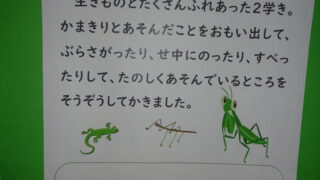 生きものとたくさんふれあった2学き。
かまきりとあそんだことをおもい出して、
ぶらさがったり、せ中にのったり、すべっ
たりして、たのしくあそんでいるところを
そうぞうしてかきました。